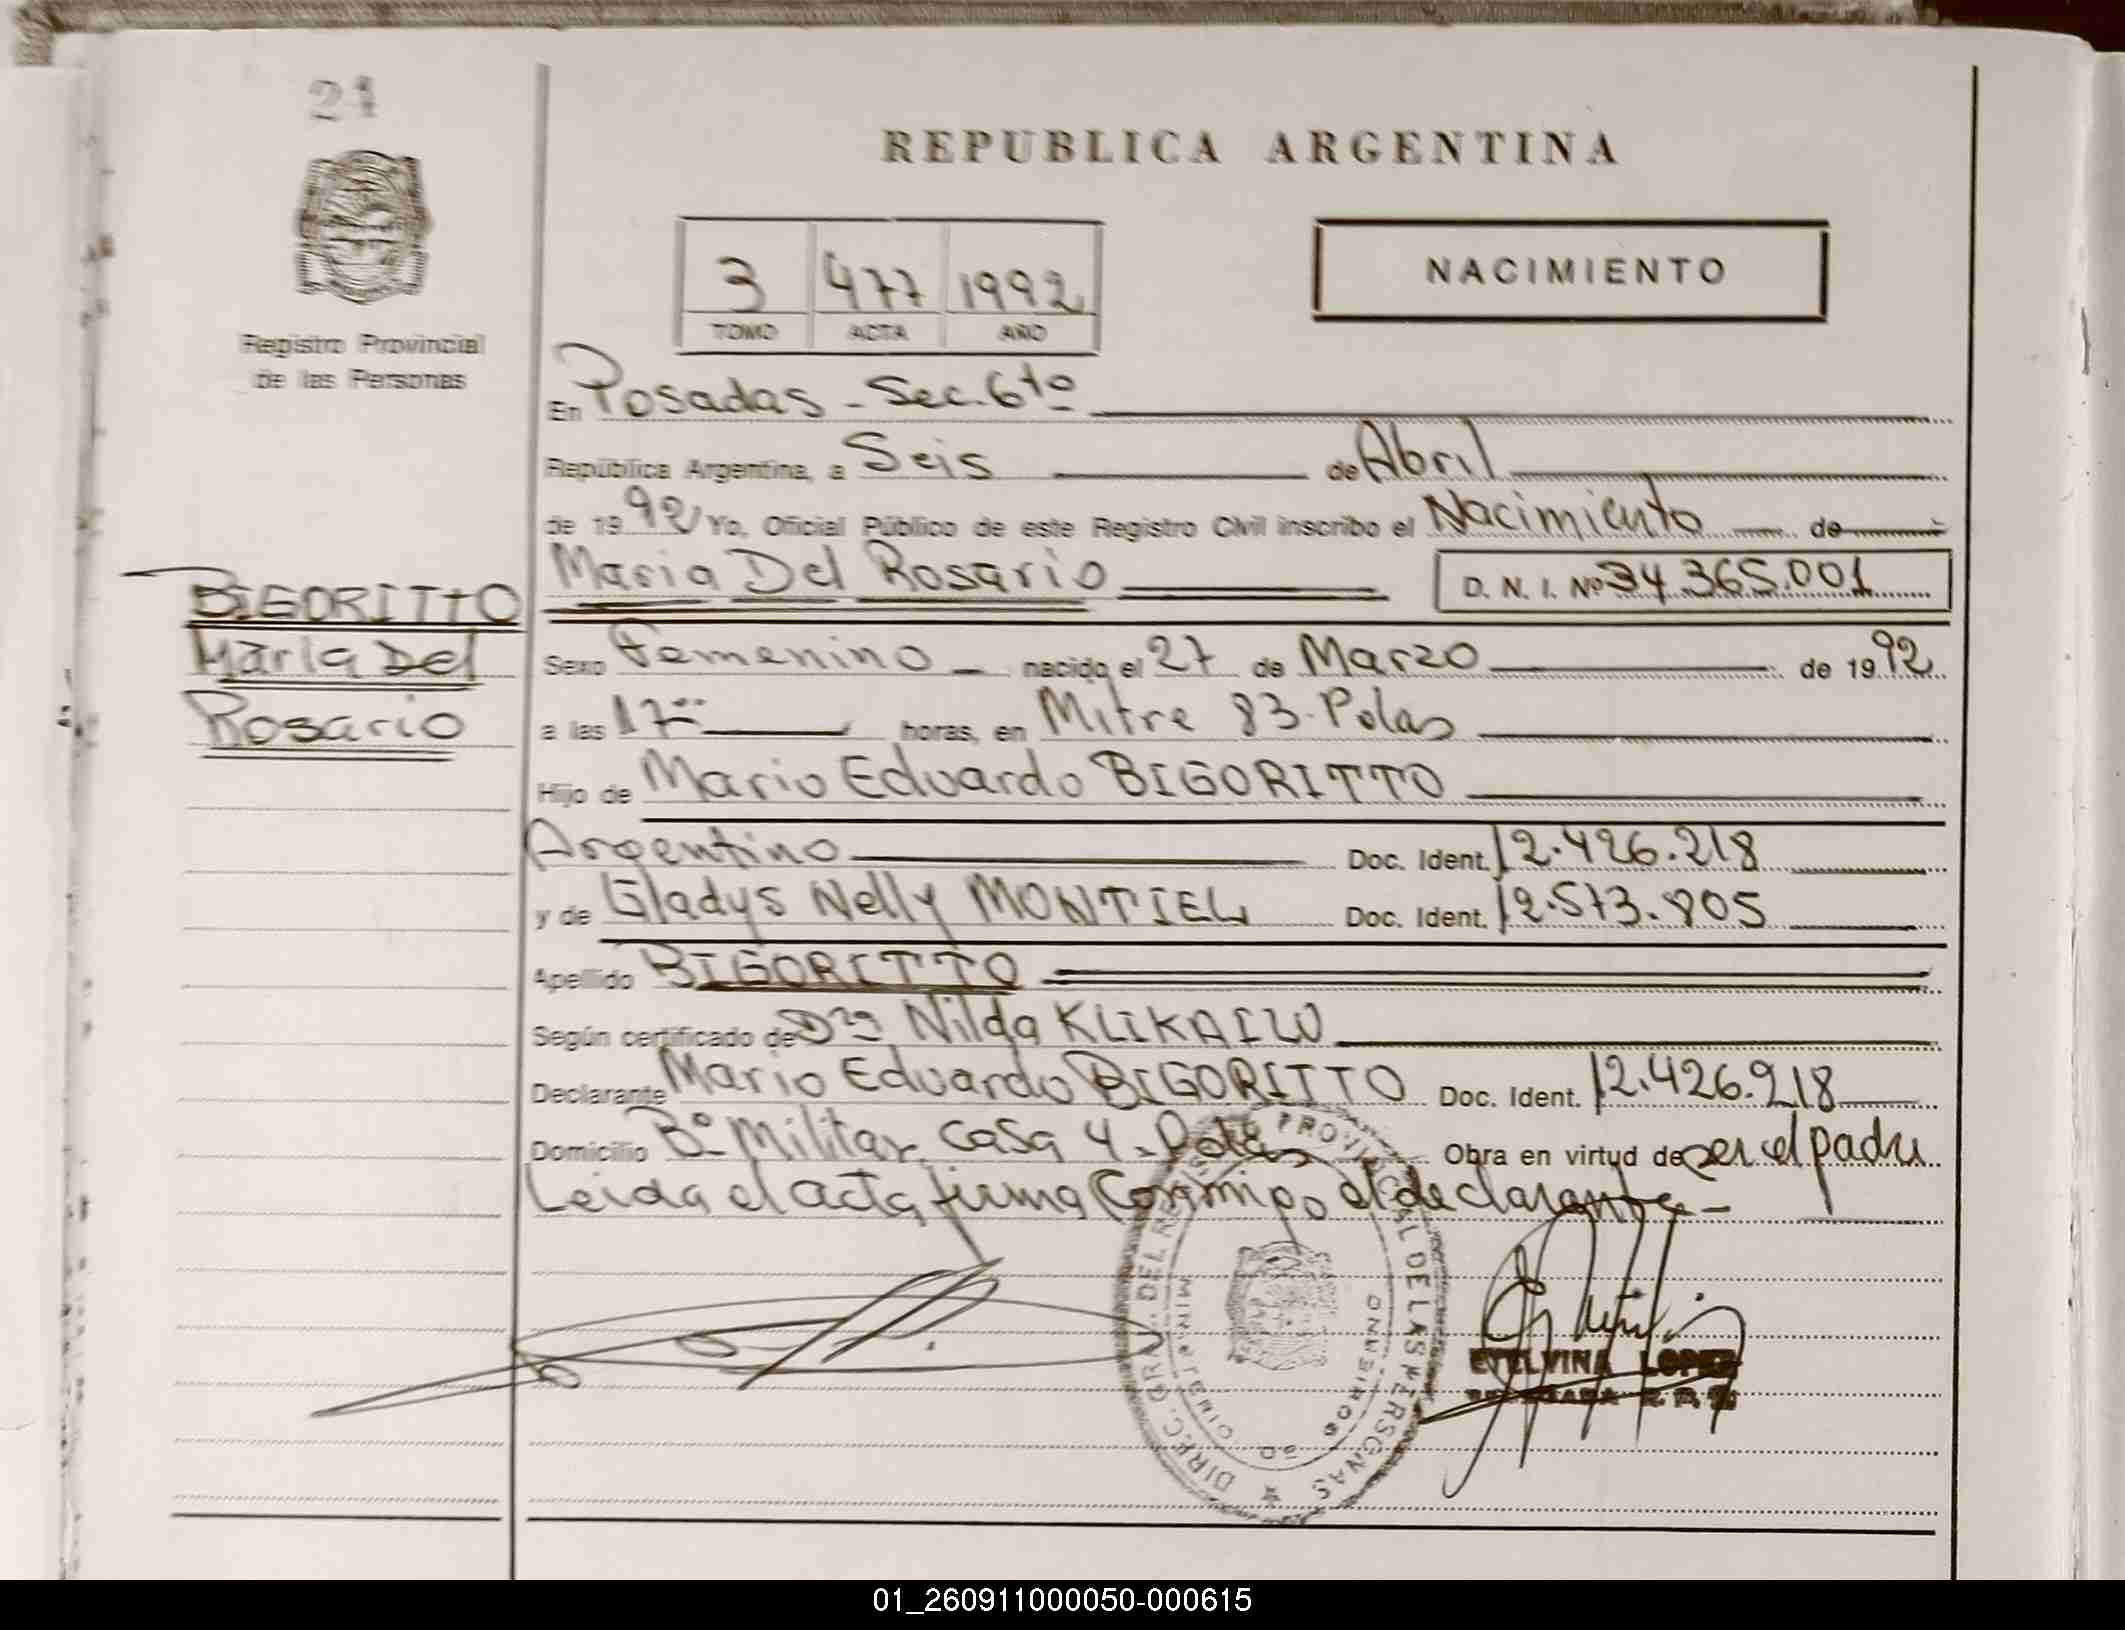 21
REPUBLICA ARGENTINA
NACIMIENTO
3 477 1992
TOMO ACTA AÑO
Registro Provincial
de las Personas
En Posadas - Sec. 6ta
República Argentina, a Seis de Abril
de 1992 Yo, Oficial Público de este Registro Civil inscribo el Nacimiento de
Maria Del Rosario D. N. I. Nº 34.365.001
BIGORITTO
Maria Del
Rosario
Sexo Femenino nacido el 27 de Marzo de 1992
a las 17 horas, en Mitre 83. Pdas
Hijo de Mario Eduardo BIGORITTO
Argentino Doc. Ident. 12.426.218
y de Gladys Nelly MONTIEL Doc. Ident. 12.573.805
Apellido BIGORITTO
Según certificado de Dra Nilda KLIKAILO
Declarante Mario Eduardo BIGORITTO Doc. Ident. 12.426.218
Domicilio Bº Militar casa 4 - Pdas Obra en virtud de ser el padre
Leida el acta firma Conmigo el declarante -
DIREC. GRAL. DEL REGISTRO PROVINCIAL DE LAS PERSONAS
MINISTERIO DE GOBIERNO
ETELVINA LOPEZ
01_260911000050-000615